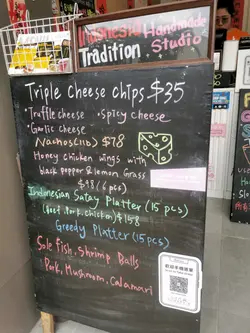 Indonesia Handmade
Tradition Studio
Triple Cheese chips $35
• Truffle cheese • Spicy cheese
• Garlic cheese
Nachos (1lb) $78
Honey chicken wings with
black pepper & lemon grass
$98 (6 pcs)
Indonesian Satay Platter (15 pcs)
(Beef, Pork, chicken) $158
Greedy Platter (15 pcs)
Sole Fish, Shrimp Balls
Pork, Mushroom, Calamari